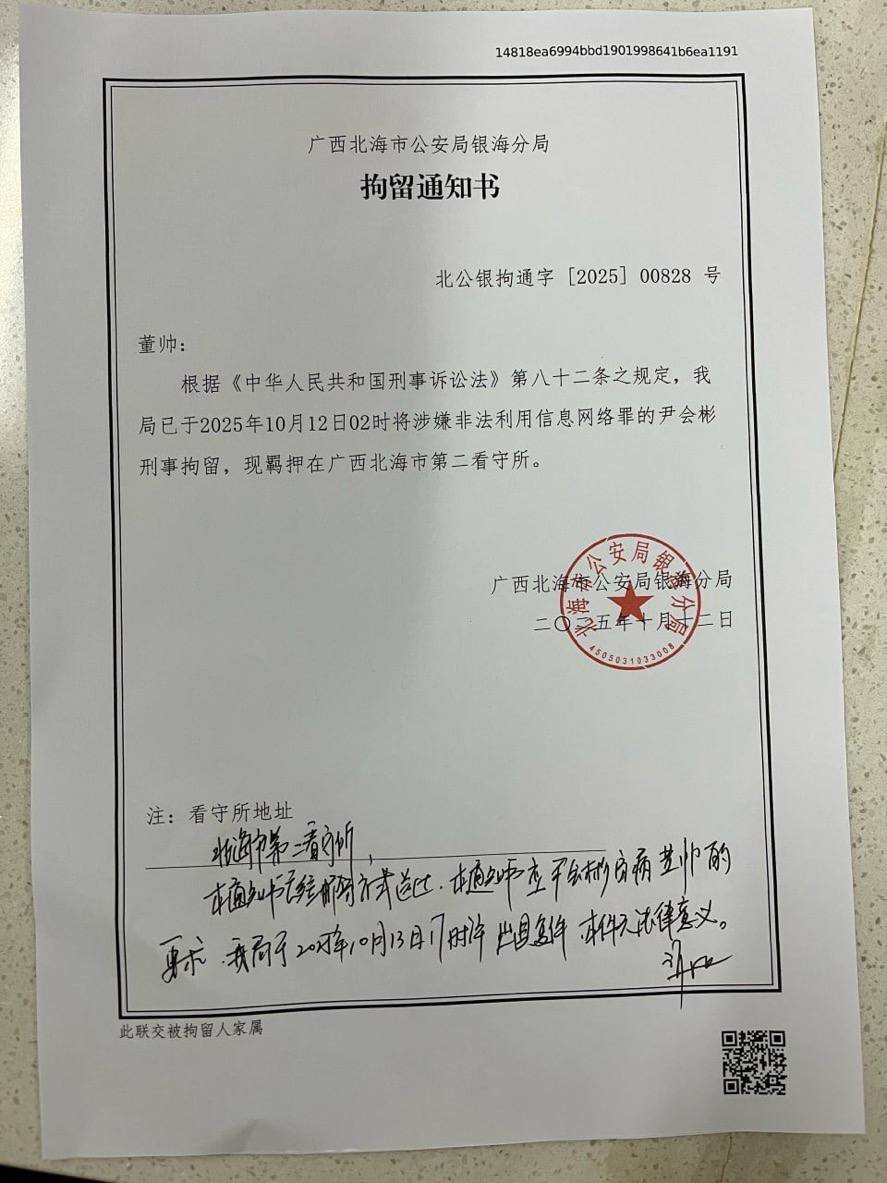 14818ea6994bbd1901998641b6ea1191
广西北海市公安局银海分局
拘留通知书
北公银拘通字［2025］00828 号
董帅：
根据《中华人民共和国刑事诉讼法》第八十二条之规定，我
局已于2025年10月12日02时将涉嫌非法利用信息网络罪的尹会彬
刑事拘留，现羁押在广西北海市第二看守所。
广西北海市公安局银海分局
二〇二五年十月十二日
北海市公安局银海分局
4505031033008
注：看守所地址
北海市第二看守所，
本通知书已经邮寄方式送达．本通知书应尹会彬 董帅的
要求．我局于2025年10月13日17时许出具复件 本件无法律意义。
此联交被拘留人家属